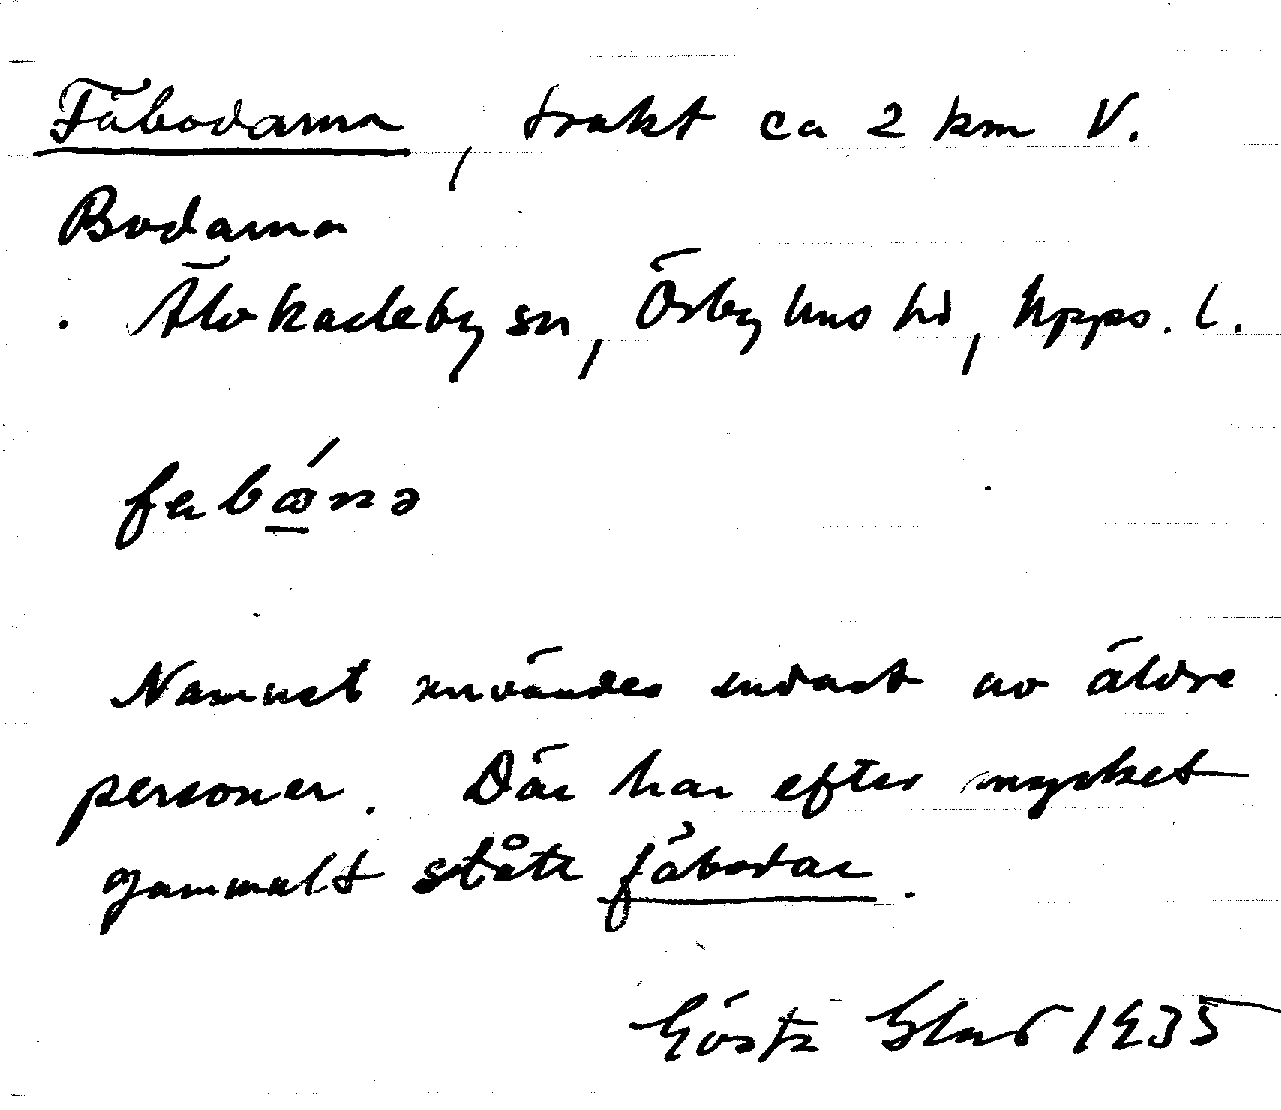 Fäbodarna, trakt ca 2 km V.
Bodarna
Älvkarleby sn, Örbyhus hd, Upps. l.
Namnet användes endast av äldre
personer. Där har efter mycket
gammalt stått fäbodar.
Gösta 1935